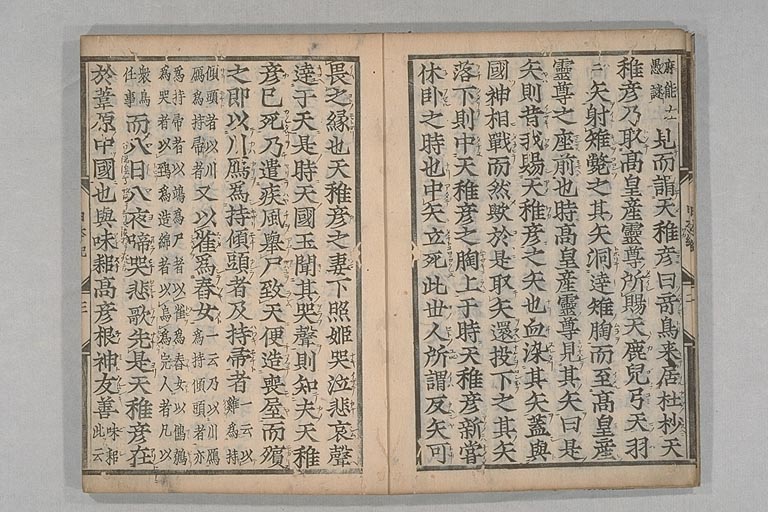 府能
愚謎
見而謂天稚彦曰奇鳥来居杜杪天
稚彦乃取髙皇産靈尊所賜天鹿兒弓天羽
二矢射雉斃之其矢洞達雉胸而至髙皇産
靈尊之座前也時髙皇産靈尊見其矢曰是
矢則昔我賜天稚彦之矢也血染其矢蓋與
國神相戰而然歟於是取矢還投下之其矢
落下則中天稚彦之胸上于時天稚彦新嘗
休卧之時也中矢立死此世人所謂反矢可
畏之縁也天稚彦之妻下照姫哭泣悲哀聲
達于天是時天國玉聞其哭聲則知夫天稚
彦已死乃遣疾風擧尸致天便造喪屋而殯
之即以川鴈爲持傾頭者及持帚者一云以
雞爲持
傾頭者以川
鴈爲持帚者又以雀爲舂女一云乃以川鴈
爲持傾頭者亦
爲持帚者以鴗爲尸者以雀爲舂女以鷦鷯
爲哭者以鵄爲造綿者以烏爲宍人者凡以
衆鳥
任事而八日八夜啼哭悲歌先是天稚彦在
於葦原中國也與味耜髙彦根神友善此云
味耜